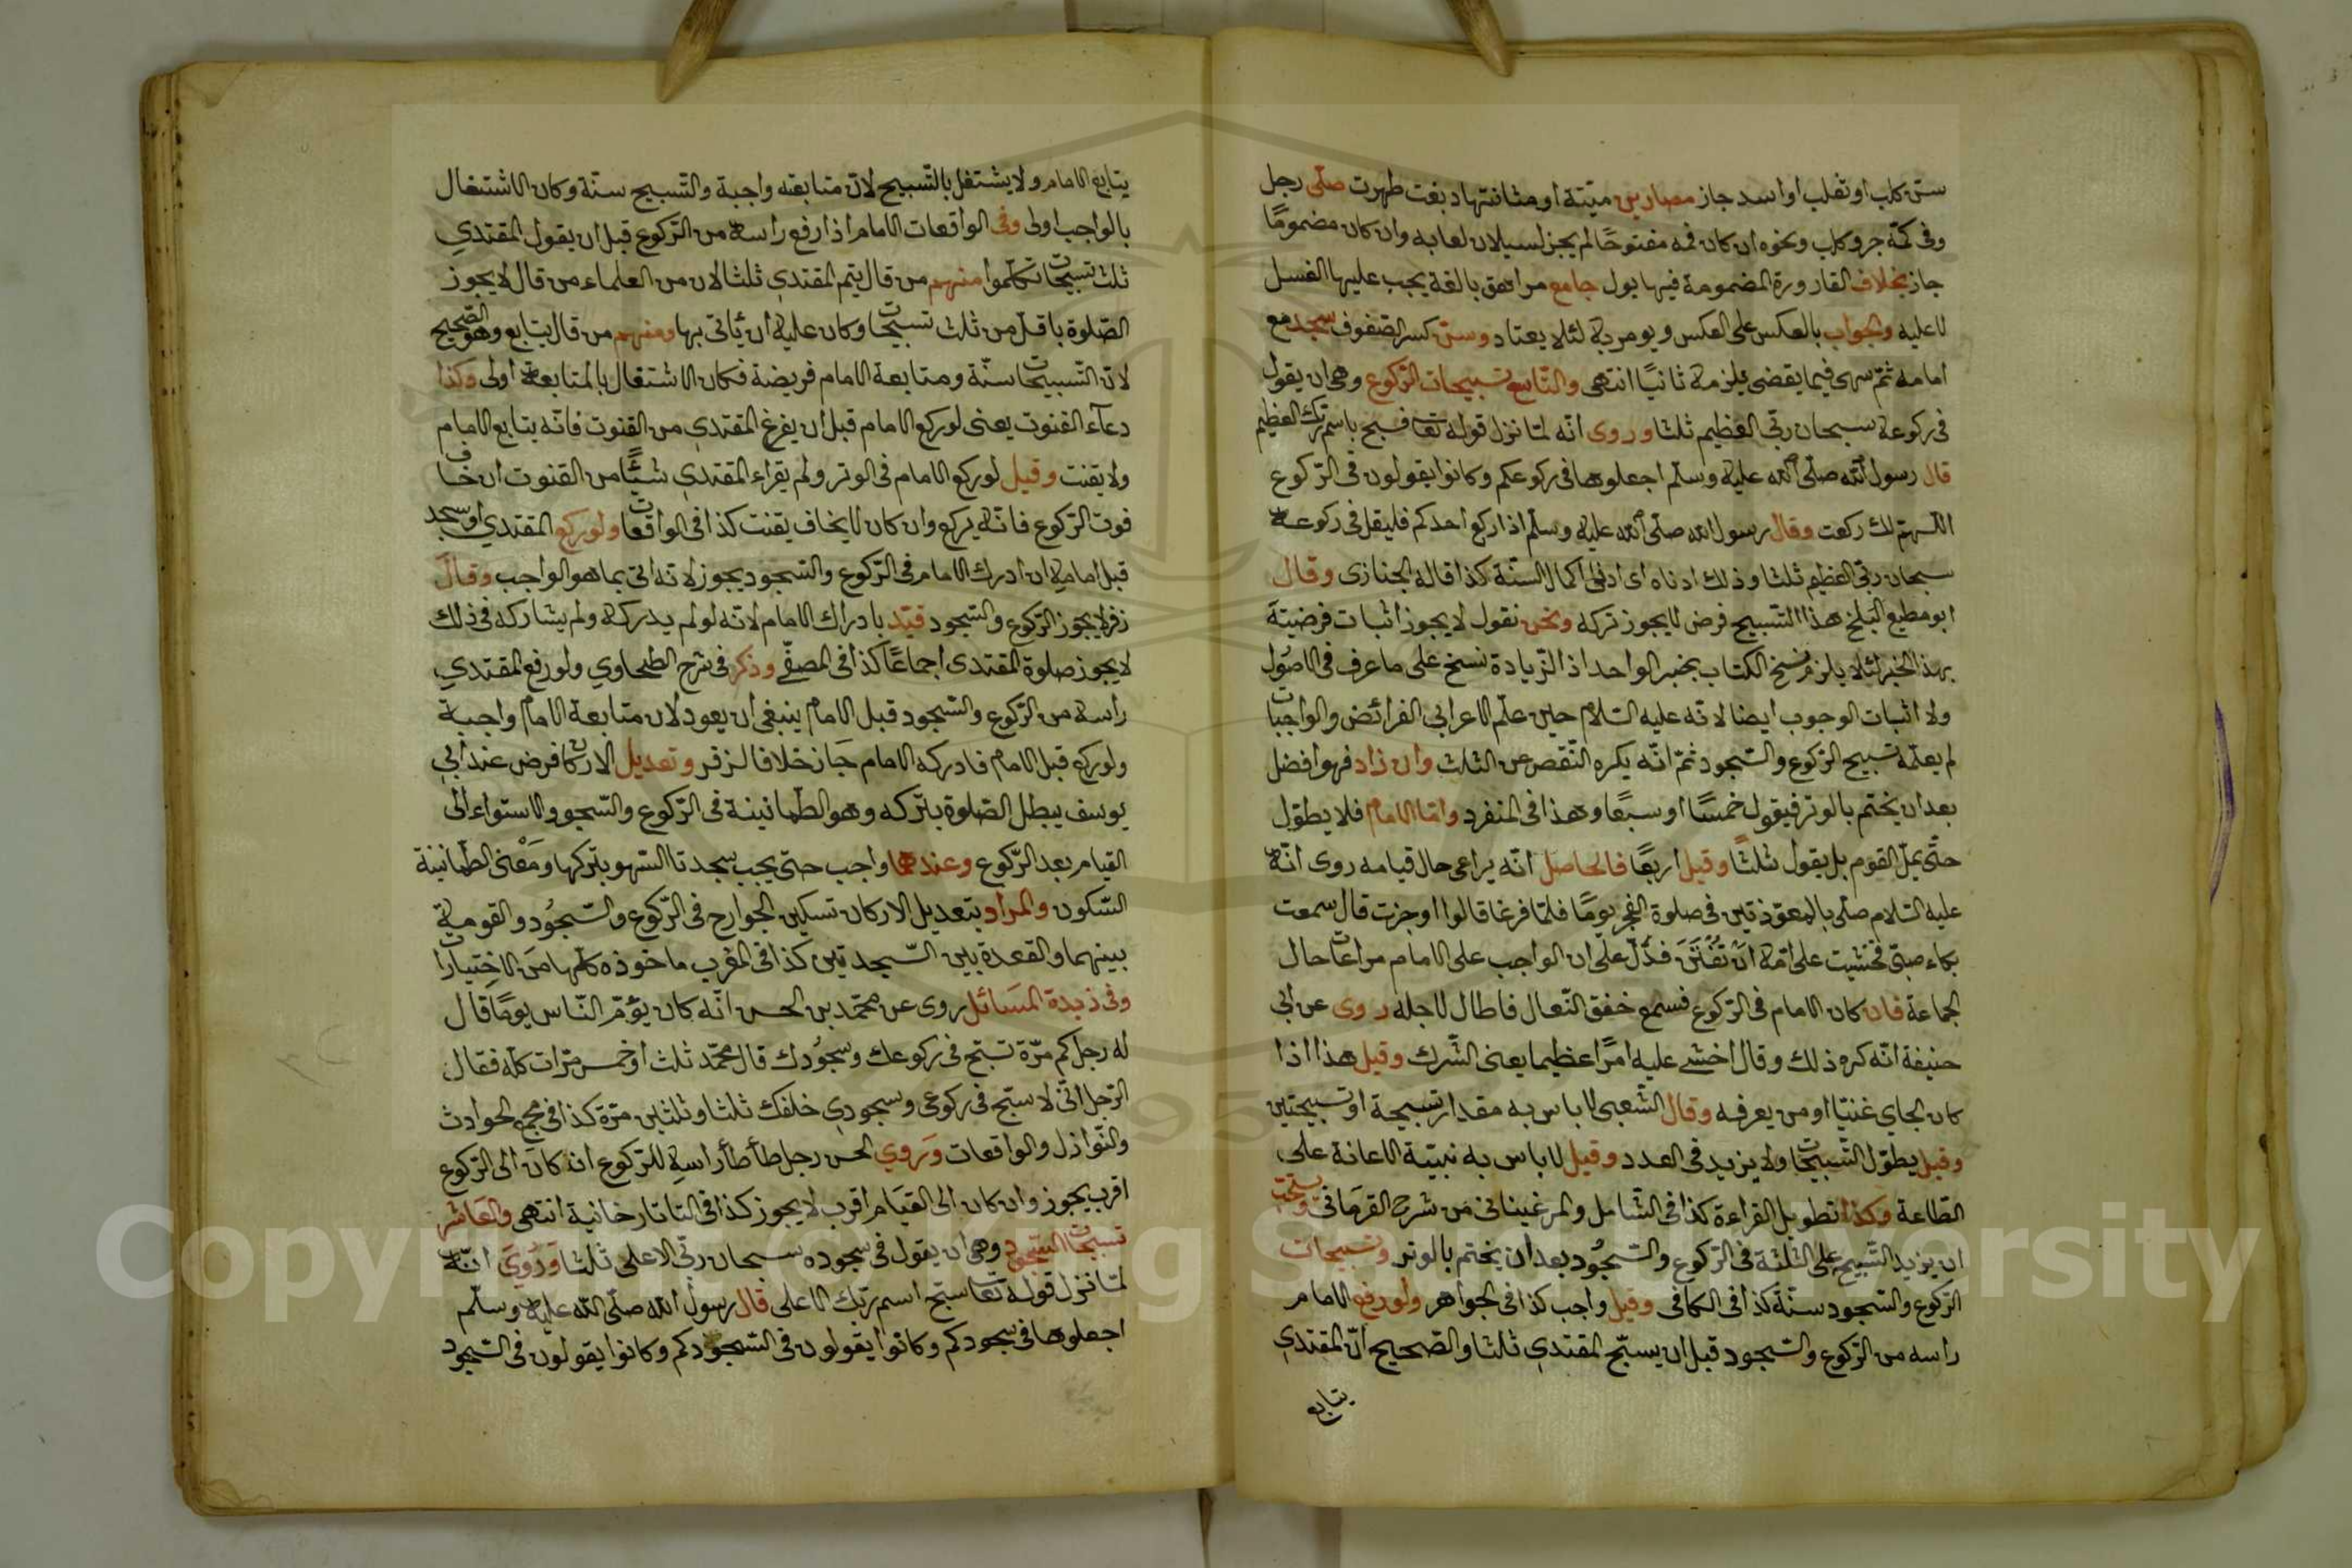 سن كلب او ثعلب او اسد جاز مصارين ميتة او مثانتها دبغت طهرت صلى رجل
وفى كمّه جرو كلب ونحوه ان كان فمه مفتوحًا لم يجز لسيلان لعابه وان كان مضمومًا
جاز بخلاف القارورة المضمومة فيها بول جامع مراهق بالغة يجب عليها الغسل
لا عليه والجواب بالعكس على العكس ويومر به لئلا يعتاد وسن كسر الصفوف سجد مع
امامه ثمّ سهى فيما يقضى يلزمه ثانيًا انتهى والتّاسع تسبيحات الرّكوع وهى ان يقول
فى ركوعه سبحان ربّى العظيم ثلثا وروى انّه لمّا نزل قوله تعا فسبح باسم ربّك العظيم
قال رسول الله صلّى الله عليه وسلّم اجعلوها فى ركوعكم وكانوا يقولون فى الرّكوع
اللّهمّ لك ركعت وقال رسول الله صلّى الله عليه وسلّم اذا ركع احدكم فليقل فى ركوعه
سبحان ربّى العظيم ثلثا وذلك ادناه اى ادنى اكمال السنّة كذا قاله الجنازى وقال
ابو مطيع البلخى هذا التّسبيح فرض لا يجوز تركه ونحن نقول لا يجوز اثبات فرضيته
بهذا الخبر لئلا يلزم نسخ الكتاب بخبر الواحد اذ الزّيادة نسخ على ما عرف فى الاصُول
ولا اثبات الوجوب ايضا لانّه عليه السّلام حين علّم الاعرابى الفرائض والواجبات
لم يعلّمه تسبيح الرّكوع والسّجود ثمّ انّه يكره النّقص عن الثلث وان زاد فهو افضل
بعد ان يختم بالوتر فيقول خمسًا او سبعًا وهذا فى المنفرد وامّا الامام فلا يطوّل
حتّى يملّ القوم بل يقول ثلثًا وقيل اربعًا فالحاصل انّه يراعى حال قيامه روى انّه
عليه السّلام صلّى بالمعوّذتين فى صلوة الفجر يومًا فلمّا فرغ قالوا اوجزت قال سمعت
بكاء صبىّ فخشيت على امّه ان تُفتَتَنَ فدّل على ان الواجب على الامام مراعات حال
الجماعة فان كان الامام فى الرّكوع فسمع خفق النّعال فاطال لاجله روى عن ابى
حنيفة انّه كره ذلك وقال اخشى عليه امرًا عظيما يعنى الشّرك وقيل هذا اذا
كان الجاى غنيّا او من يعرفه وقال الشّعبى لا باس به مقدار تسبيحة او تسبيحتين
وقيل يطوّل التّسبيحات ولا يزيد فى العدد وقيل لا باس به نبيّة الاعانة على
الطّاعة وكذا تطويل القراءة كذا فى الشّامل والمرغينانى من شرح القرمانى ويستحبّ
ان يزيد التّسبيح على الثّلثة فى الرّكوع والسّجُود بعد ان يختم بالوتر وتسبيحات
الرّكوع والسّجود سنّة كذا فى الكافى وقيل واجب كذا فى الجواهر ولو رفع الامام
راسه من الرّكوع والسّجود قبل ان يسبّح المقتدى ثلثا والصّحيح انّ المقتدى
يتابع
يتابع الامام ولا يشتغل بالتّسبيح لانّ متابعته واجبة والتّسبيح سنّة وكان الاشتغال
بالواجب اولى وفى الواقعات الامام اذا رفع راسه من الرّكوع قبل ان يقول المقتدي
ثلث تسبيحات تكلّموا منهم من قال يتم المقتدي ثلثا لان من العلماء من قال لا يجوز
الصّلوة باقلّ من ثلث تسبيحات وكان عليه ان يأتى بها ومنهم من قال يتابع وهو الصّحيح
لانّ التّسبيحات سنّة ومتابعة الامام فريضة فكان الاشتغال بالمتابعة اولى وكذا
دعآء القنوت يعنى لو ركع الامام قبل ان يفرغ المقتدي من القنوت فانّه يتابع الامام
ولا يقنت وقيل لو ركع الامام فى الوتر ولم يقراء المقتدي شيئًا من القنوت ان خاف
فوت الرّكوع فانّه يركع وان كان لا يخاف يقنت كذا فى الواقعات ولو ركع المقتدي او سجد
قبل امامه ان ادرك الامام فى الرّكوع والسّجود يجوز لانّه اتى بما هو الواجب وقال
زفر لا يجوز الرّكوع والسّجود قيّد بادراك الامام لانّه لو لم يدركه ولم يشاركه فى ذلك
لا يجوز صلوة المقتدى اجماعًا كذا فى المصفّى وذكر فى شرح الطحاوي ولو رفع المقتدي
راسه من الرّكوع والسّجود قبل الامام ينبغى ان يعود لان متابعة الامام واجبة
ولو ركع قبل الامام فادركه الامام جَاز خلافا لزفر وتعديل الاركان فرض عند ابي
يوسف يبطل الصّلوة بتركه وهو الطّمانينة فى الرّكوع والسّجود والاستواء الى
القيام بعد الرّكوع وعندهما واجب حتى يجب سجدتا السّهو بتركها ومَعْنى الطّمانينة
السّكون والمراد بتعديل الاركان تسكين الجوارح فى الرّكوع والسّجُود والقومة
بينهما والقعدة بين السّجدتين كذا فى المغرب ماخوذه كلّها من الاختيارات
وفى زبدة المسَائل روى عن محمّد بن الحسن انّه كان يؤمّ النّاس يومًا قال
له رجل كم مرّة تسبّح فى ركوعك وسجُودك قال محمّد ثلث او خمس مرّات كلّه فقال
الرّجل انّى لا سبّح فى ركوعى وسجودي خلفك ثلثا وثلثين مرّة كذا فى مجمع الحوادث
والنّوازل والواقعات وَروي الحسن رجل طأطأ راسه للرّكوع ان كان الى الرّكوع
اقرب يجوز وان كان الى القيَام اقرب لا يجوز كذا فى التاتارخانية انتهى والعَاشر
تسبيحات السّجود وهى ان يقول فى سجوده سبحان ربّى الاعلى ثلثا وَرُوِيَ انّه
لمّا نزل قوله تعا سبّح اسم ربّك الاعلى قال رسول الله صلّى الله عليه وسلّم
اجعلوها فى سجودكم وكانوا يقولون فى السّجودكم وكانوا يقولون فى السّجود
Copyright © King Saud University